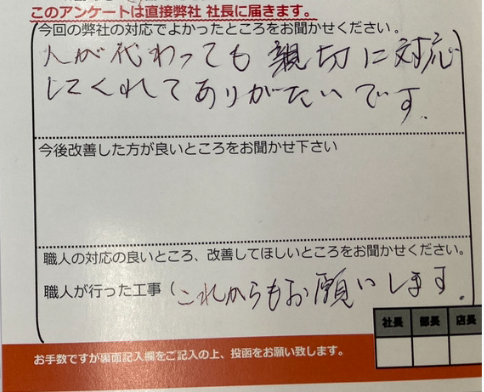 このアンケートは直接弊社 社長に届きます。
今回の弊社の対応でよかったところをお聞かせください。
人が代わっても親切に対応
してくれてありがたいです.
今後改善した方が良いところをお聞かせ下さい
職人の対応の良いところ、改善してほしいところをお聞かせください。
職人が行った工事(これからもお願いします.
社長 部長 店長
お手数ですが裏面記入欄をご記入の上、投函をお願い致します。